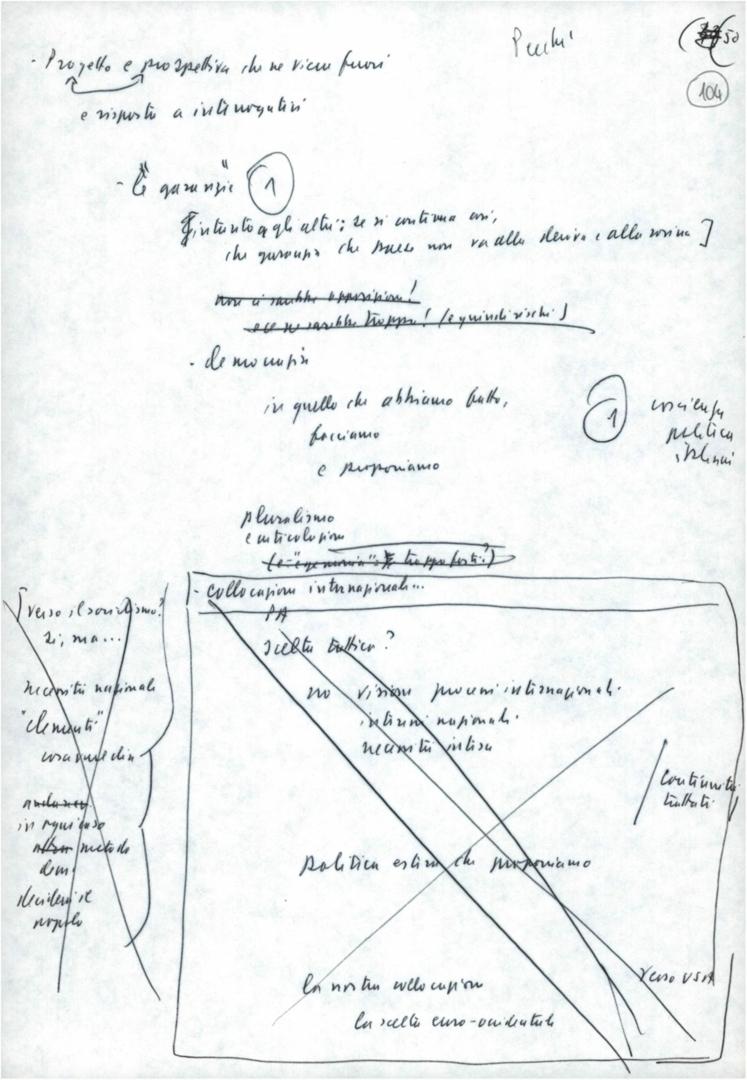 Pecchi
50
104
- Progetto e prospettiva che ne viene fuori
e risposta a interrogativi
- Le "garanzie" 1
[intanto agli altri: se si continua così,
che garanzia che paese non va alla deriva e alla rovina]
non ci sarebbe opposizione!
e ce ne sarebbe troppa! (e quindi rischi)
- democrazia
in quello che abbiamo fatto,
facciamo
e proponiamo
1 coscienza
politica
italiani
pluralismo
e articolazione
(e "egemonia": troppo forti?)
- collocazione internazionale...
PA
scelta tattica?
no visione processi internazionali
interessi nazionali
necessità intesa
continuità
trattati
politica estera che proponiamo
verso USA
la nostra collocazione
la scelta euro-occidentale
[verso il socialismo?
sì, ma...
necessità nazionale
"elementi"
cosa vuol dire
in ogni caso
metodo
dem.
deciderà il
popolo